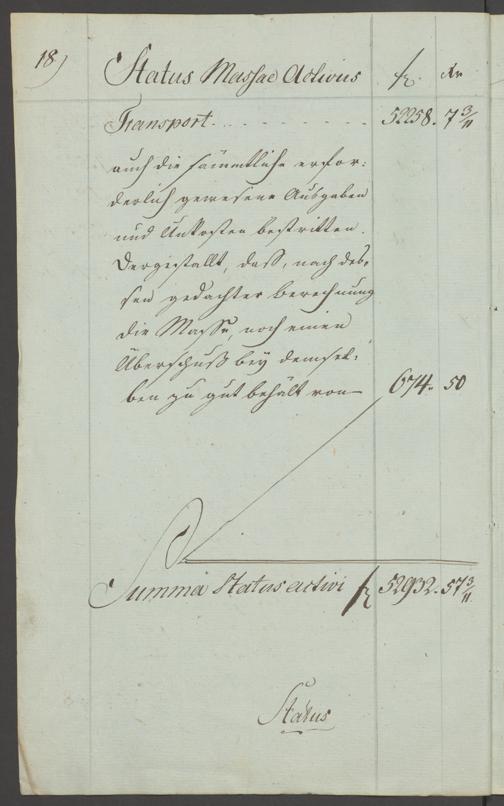 18) Status Massae Activus f. Kr
Transport. . . . . . . . . . 52258. 7 3/11
auch die sämmtliche erfor:
derlich gewesene Ausgaben
und Unkosten bestritten.
Dergestallt, daß, nach des„
sen gedachter Berechnung
die Masse, noch einen
Überschuß bey demsel„
ben zu gut behält von— 674. 50
Summa Status activi f 52932. 57 3/11
Status